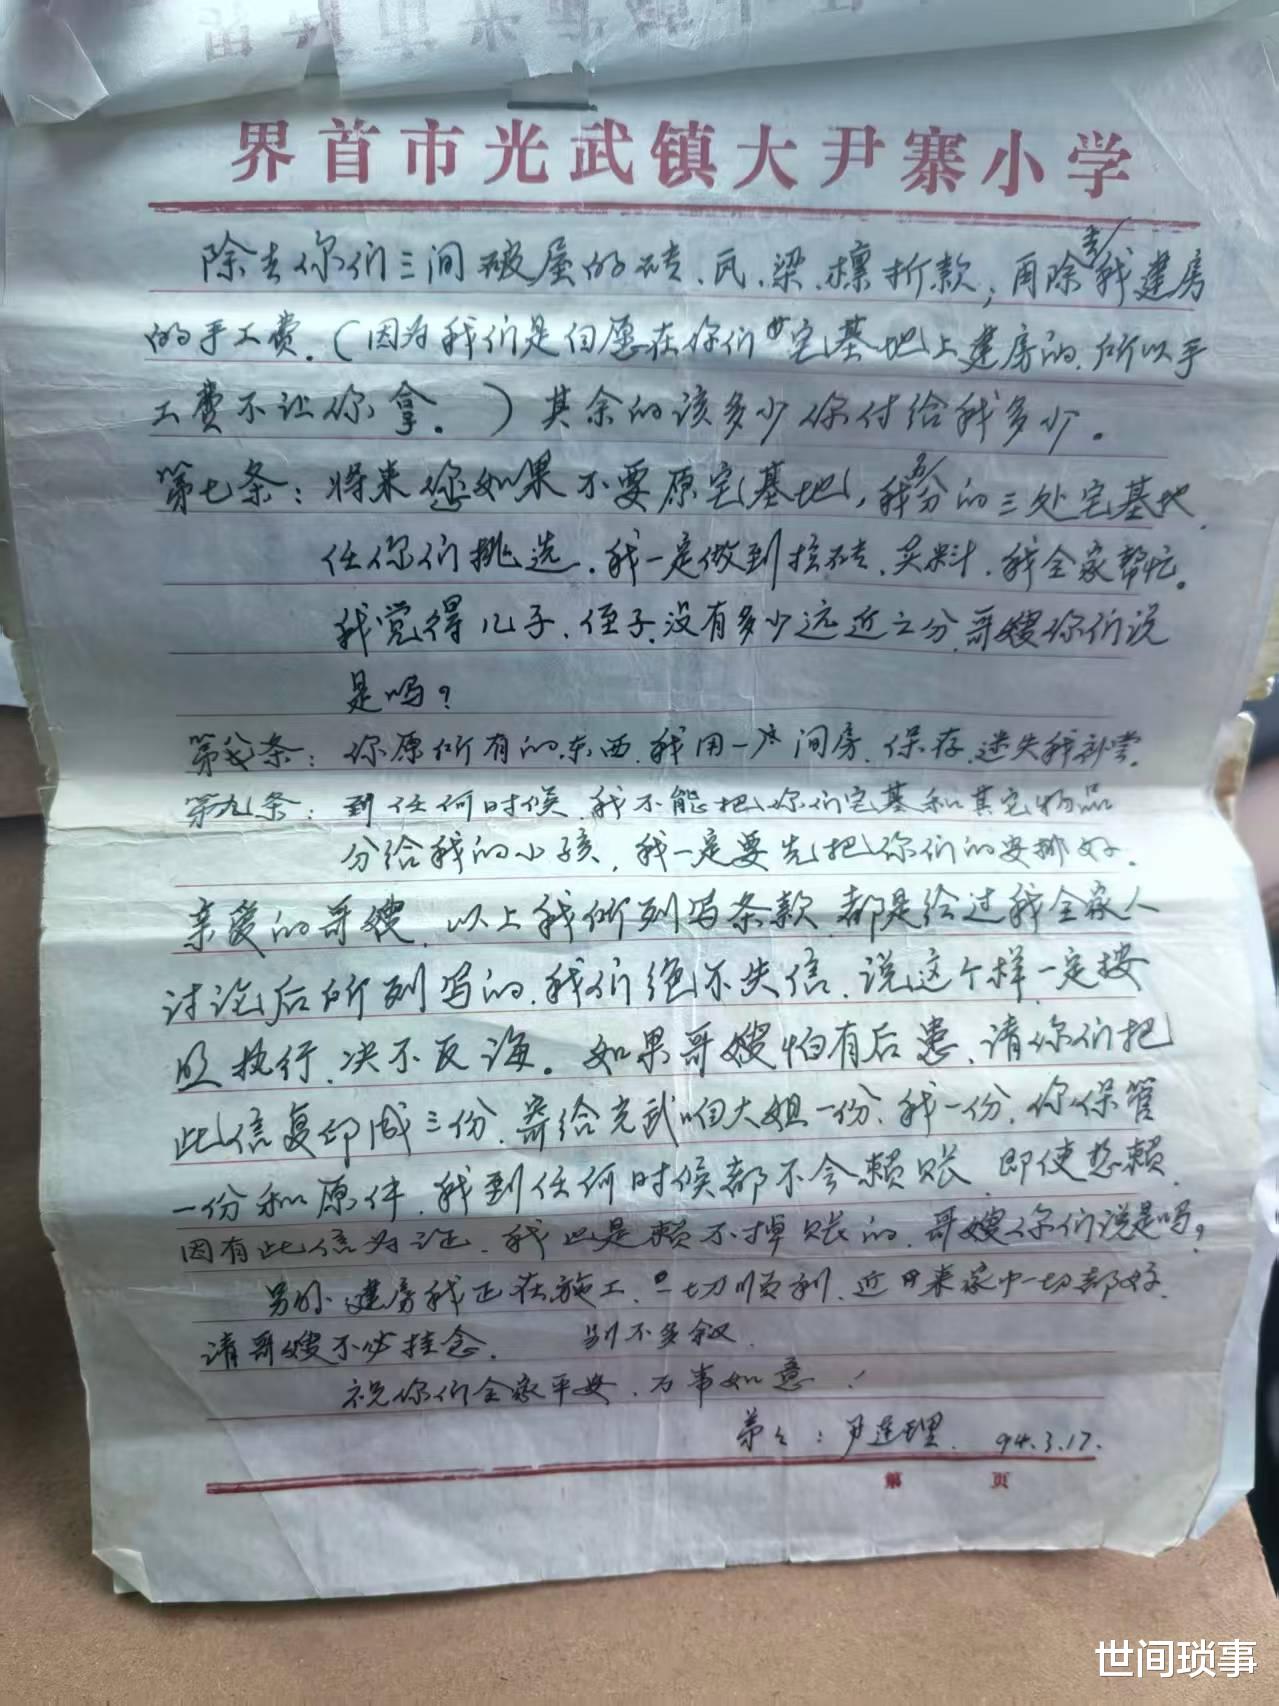 界首市光武镇大尹寨小学
除去你们三间破屋的砖、瓦、梁、檩折款，再除去我建房
的手工费。（因为我们是自愿在你们宅基地上建房的，所以手
工费不让你拿。）其余的该多少你付给我多少。
第七条：将来您如果不要原宅基地，我分的三处宅基地，
任你们挑选。我一定做到拉砖、买料，我全家帮忙。
我觉得儿子、侄子没有多少远近之分，哥嫂你们说
是吗？
第八条：你原所有的东西，我用一间房，保存，迷失我补尝。
第九条：到任何时候，我不能把你们宅基和其它物品
分给我的小孩，我一定要先把你们的安排好。
亲爱的哥嫂，以上我所列写条款，都是给过我全家人
讨论后所列写的，我们绝不失信，说这个样，一定按
照执行，决不反诲。如果哥嫂怕有后患，请你们把
此信复印成三份，寄给光武咱大姐一份、我一份，你保管
一份和原件，我到任何时候都不会赖账，即使想赖，
因有此信为证，我也是赖不掉账的，哥嫂你们说是吗？
另外，建房我正在施工，一切顺利，近日来家中一切都好，
请哥嫂不必挂念。 别不多叙。
祝你们全家平安，万事如意！
弟弟：尹连理 94.3.17.
第 页
世间琐事